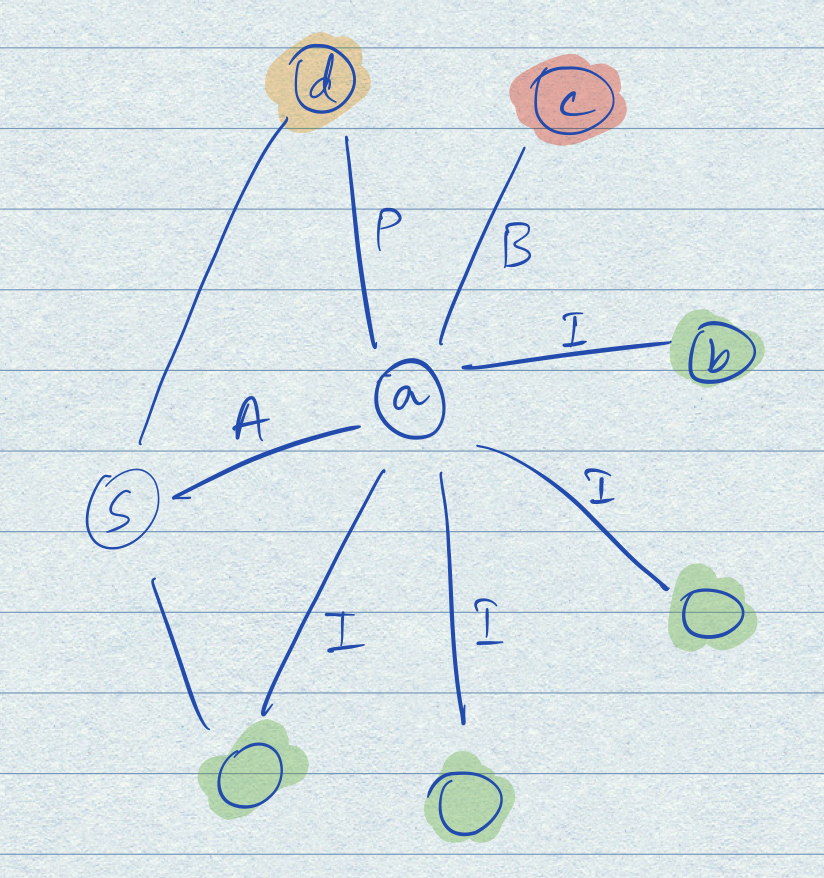 d
c
P
B
I
b
a
A
I
S
I
I